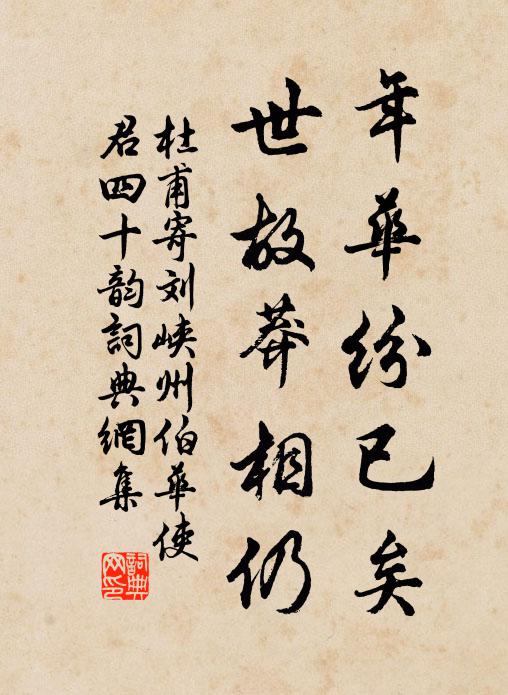 年華紛已矣
世故莽相仍
杜甫寄刘峡州伯華使
君四十韵詞典網集
詞典
网印